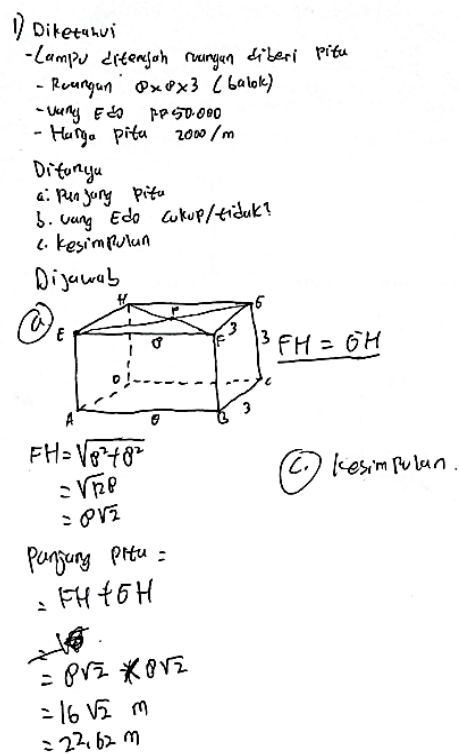 1) Diketahui
- Lampu ditengah ruangan diberi pita
- Ruangan 8x8x3 (balok)
- uang Edo RP 50.000
- Harga pita 2000/m
Ditanya
a. Panjang pita
b. uang Edo cukup/tidak?
c. kesimpulan
Dijawab
a
H
G
P
E
8
F
3
3
FH = GH
D
C
A
8
B
3
FH = √8²+8²
= √128
= 8√2
c. kesimpulan.
Panjang pita =
= FH + GH
= 8√2 + 8√2
= 16√2 m
= 22,62 m